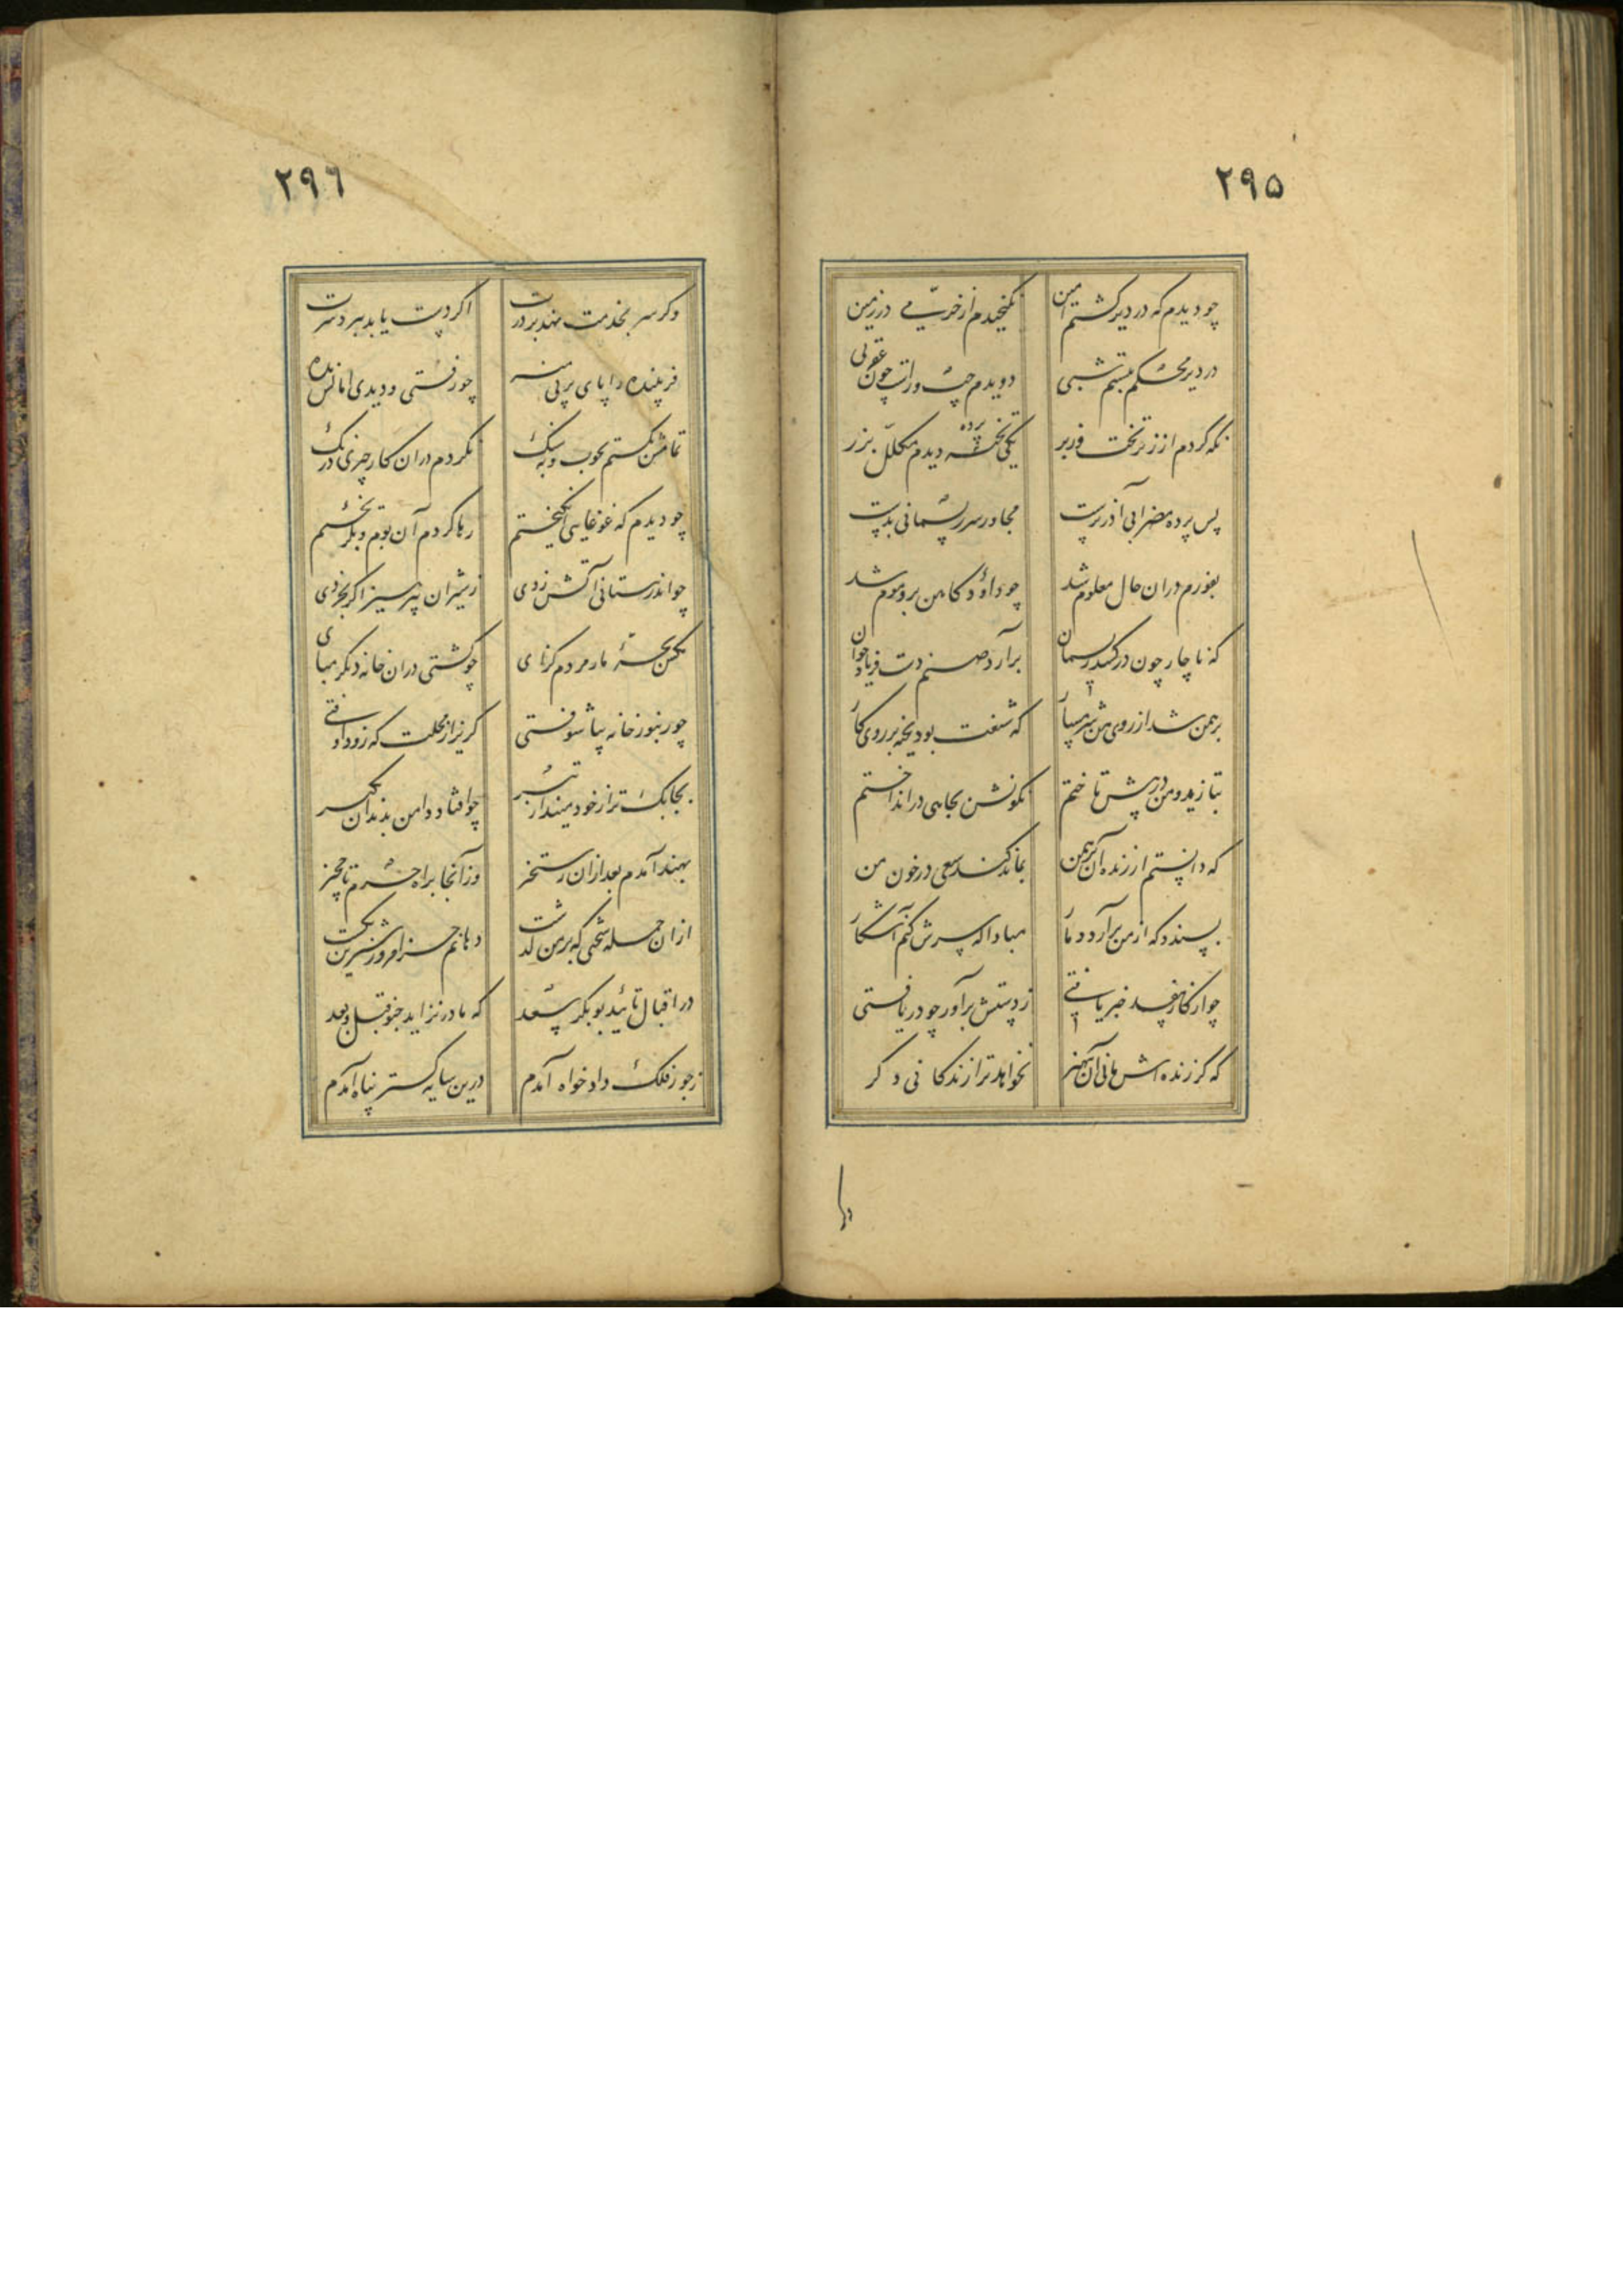 ۲۹۵
چو دیدم که در دیر کشتم امین نکنجیدم از خرمی در زمین
در دیر محکم ببستم شبی دویدم چپ و راست چون عقربی
نکه کردم از زیر تخت و زبر یکی پرده دیدم مکلل بزر
پس پرده مطرانی آذرپرست مجاور سر ریسمانی بدست
بفورم در ان حال معلوم شد چو داود کاهن برو موم شد
که ناچار چون در کشد ریسمان برارد صنم دست فریاد خوان
برهمن شد از روی من شرمسار که شنعت بود بخیه بر روی کار
بتازید و من در پیش تاختم نکونش بچاهی در انداختم
که دانستم ار زنده آن برهمن بماند کند سعی در خون من
پسندد که از من برآرد دمار مبادا که سرش کنم آشکار
چو از کار مفسد خبر یافتی ز دستش برآور چو دریافتی
که کر زنده اش مانی آن بی هنر نخواهد ترا زندکانی دکر
۲۹۶
و کر سر بخدمت نهد بر درت اکر دست یابد ببرد سرت
فریبنده را پای در پی منه چو رفتی و دیدی امانش مده
تمامش بکشتم بخوب و بسنک نکردم در ان کار چیزی درنک
چو دیدم که غوغایی انکیختم رها کردم آن بوم و بکریختم
چو اندر نیستانی آتش زدی ز شیران بپرهیز اکر بخردی
مکش بچهٔ مار مردم کزای چو کشتی در ان خانه دیکر مپای
چو زنبور خانه بیاشوفتی کریز از محلت که زود اوفتی
بچابک تر از خود مینداز تیر چو افتاد دامن بدندان بکیر
بهند آمدم بعد از ان رستخیز وز آنجا براه حجاز
از ان جمله سختی که بر من کذشت دهانم جز امروز شیرین نکشت
در اقبال تائید بوبکر سعد که مادر نزاید چنو قبل و بعد
ز جور فلک دادخواه آمدم درین سایه کستر پناه آمدم